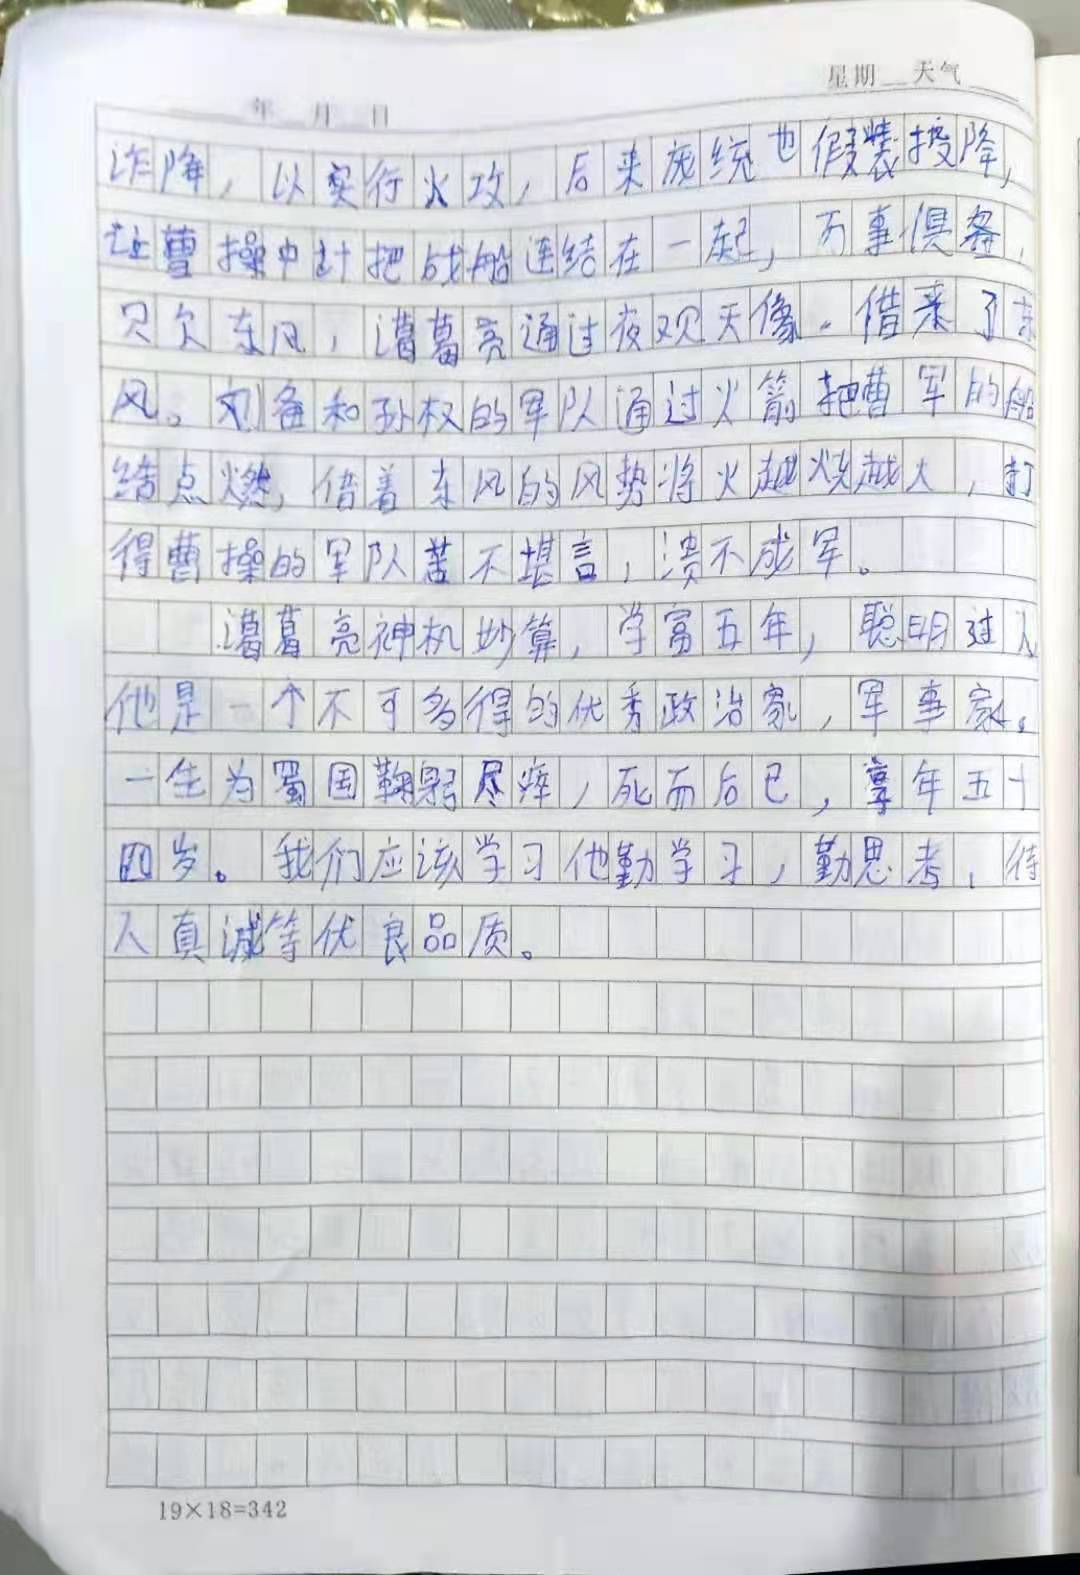 年 月 日 星期 天气
诈降，以实行火攻，后来庞统也假装投降，
让曹操中计把战船连结在一起，万事俱备，
只欠东风，诸葛亮通过夜观天像，借来了东
风。刘备和孙权的军队通过火箭把曹军的船
结点燃，借着东风的风势将火越烧越大，打
得曹操的军队苦不堪言，溃不成军。
诸葛亮神机妙算，学富五年，聪明过人
他是一个不可多得的优秀政治家，军事家。
一生为蜀国鞠躬尽瘁，死而后已，享年五十
四岁。我们应该学习他勤学习，勤思考，待
人真诚等优良品质。
19×18=342